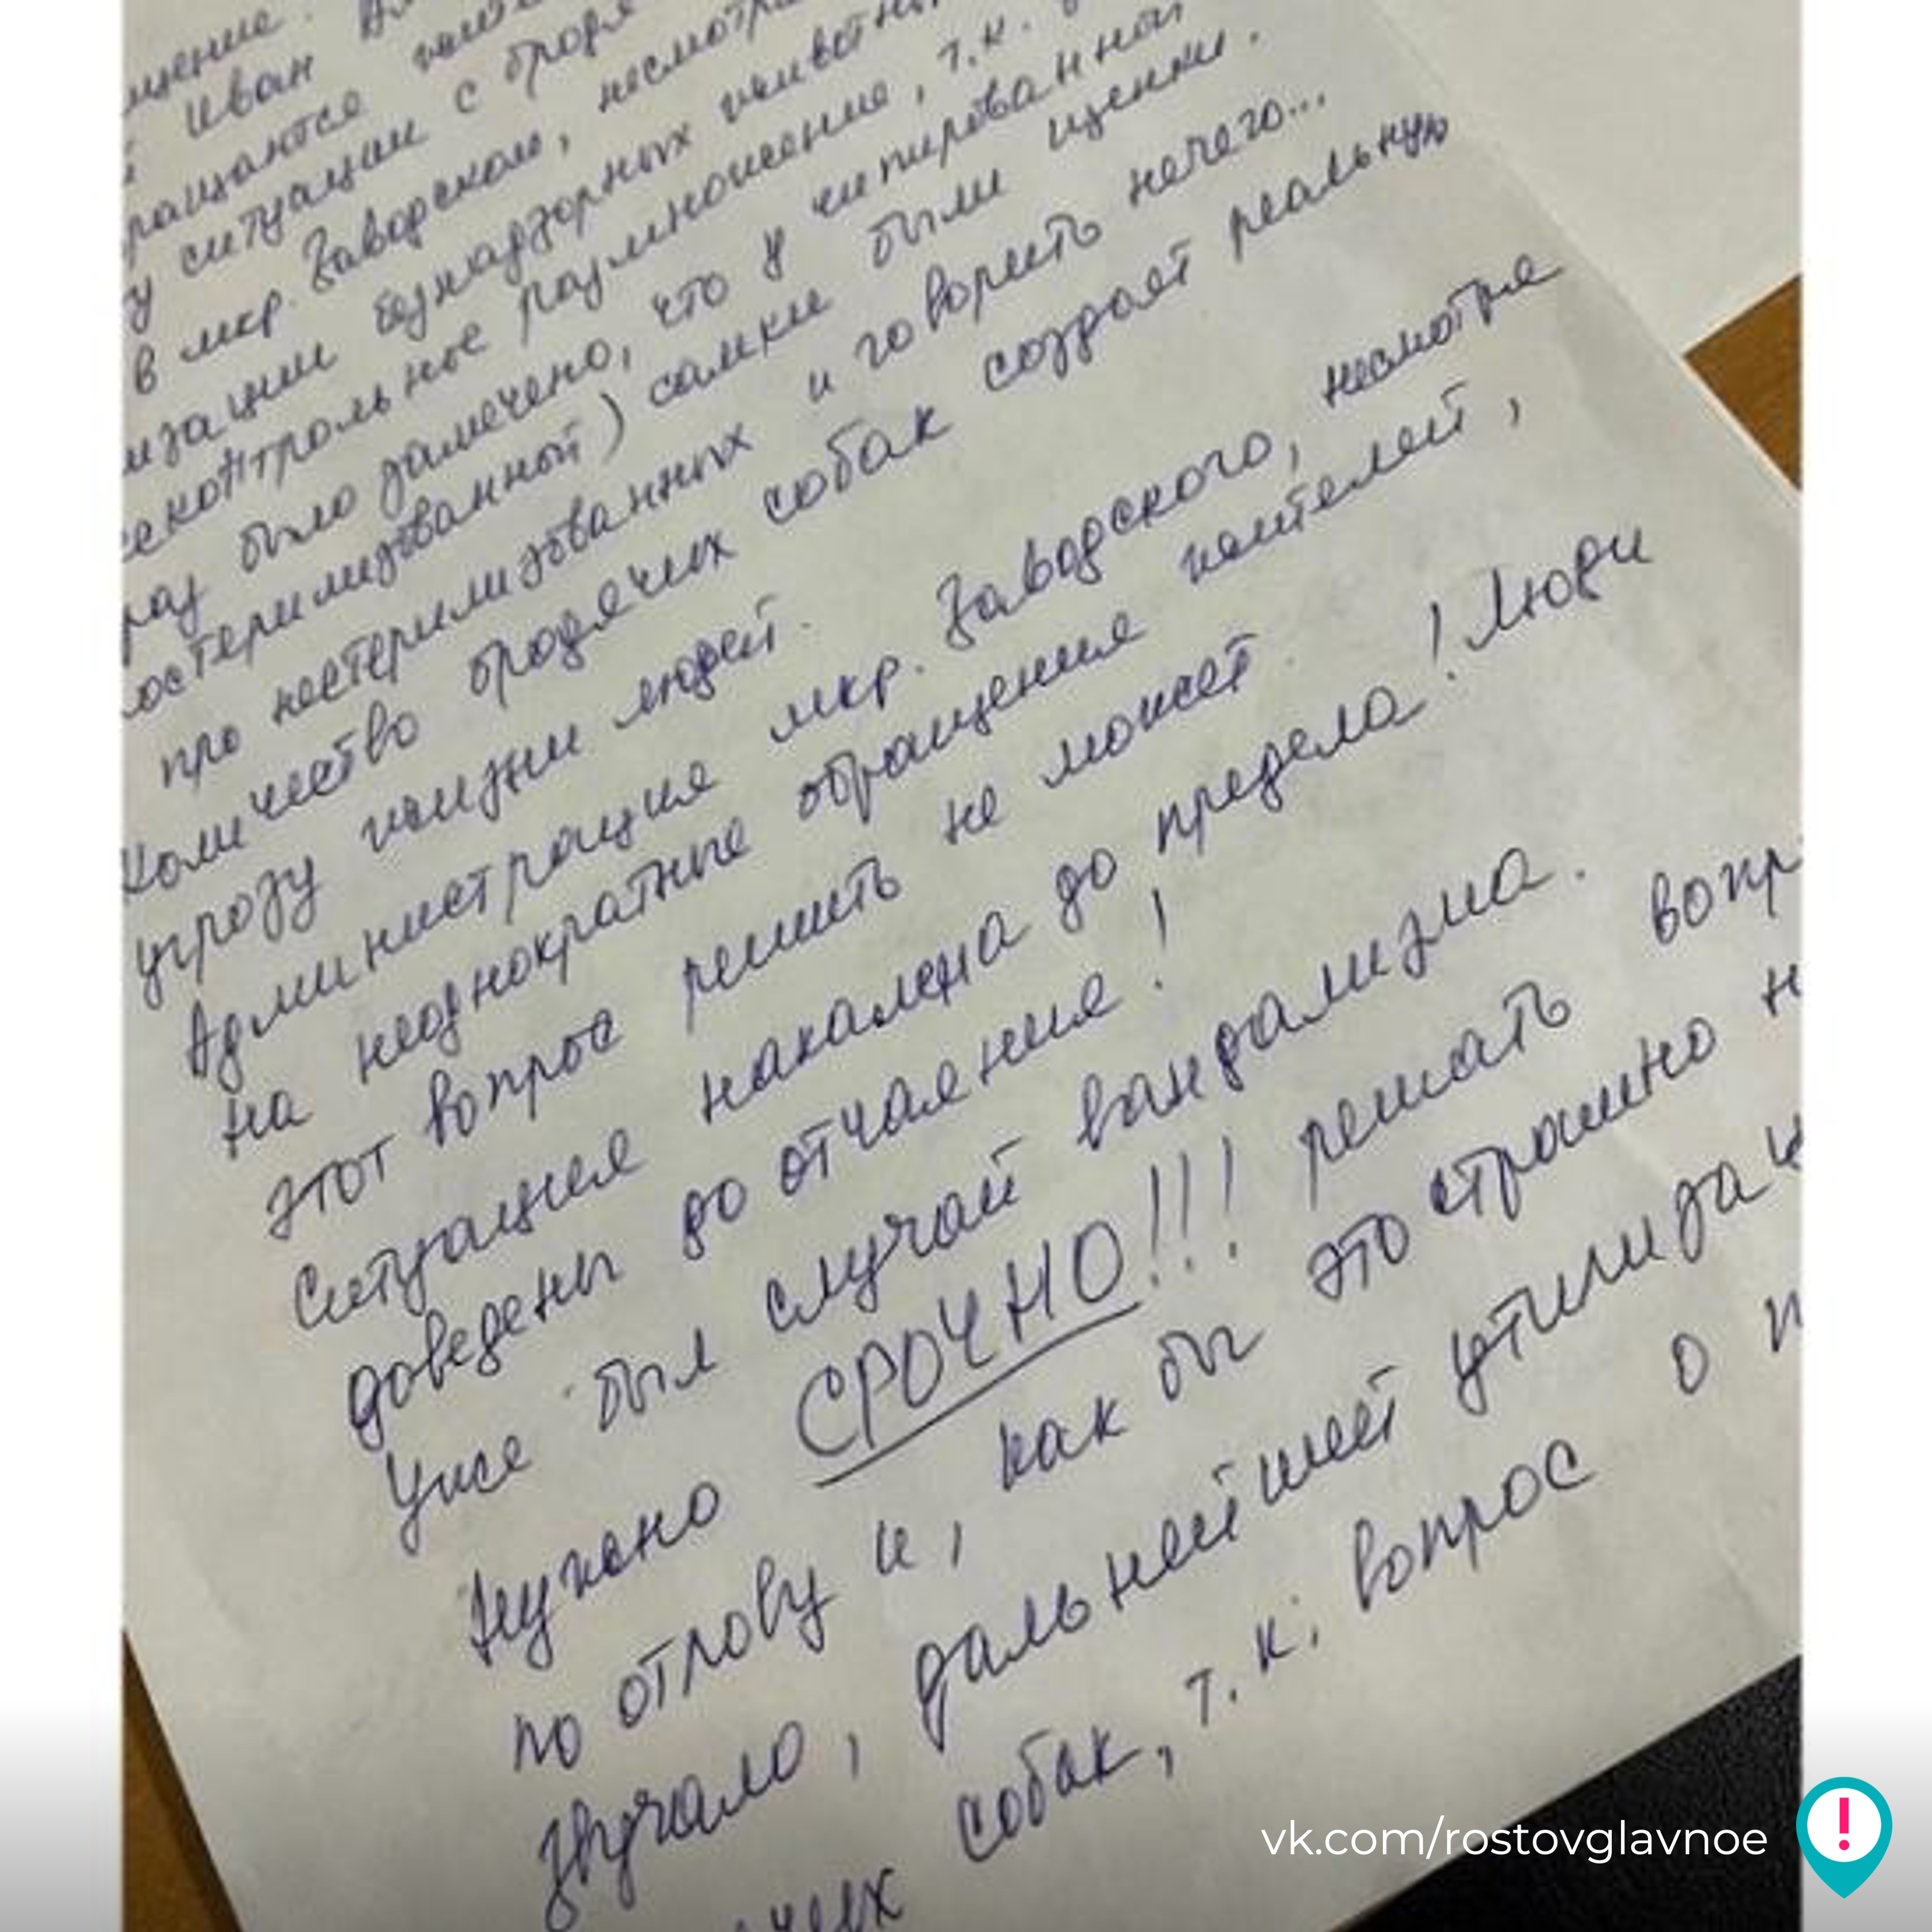 Иван
ситуации с
в мкр. Заводском, несмотря
безнадзорных животных
размножение, т.к.
было замечено, что у чипированной
самки были щенки.
про нестерилизованных и говорить нечего...
Количество бродячих собак создает реальную
угрозу жизни людей.
Администрация мкр. Заводского, несмотря
на неоднократные обращения жителей,
этот вопрос решить не может.
Ситуация накалена до предела! Люди
доведены до отчаяния!
Уже был случай вандализма.
Нужно СРОЧНО!!! решать вопр
по отлову и, как бы это страшно н
звучало, дальнейшей утилизац
собак, т.к. вопрос о п
vk.com/rostovglavnoe